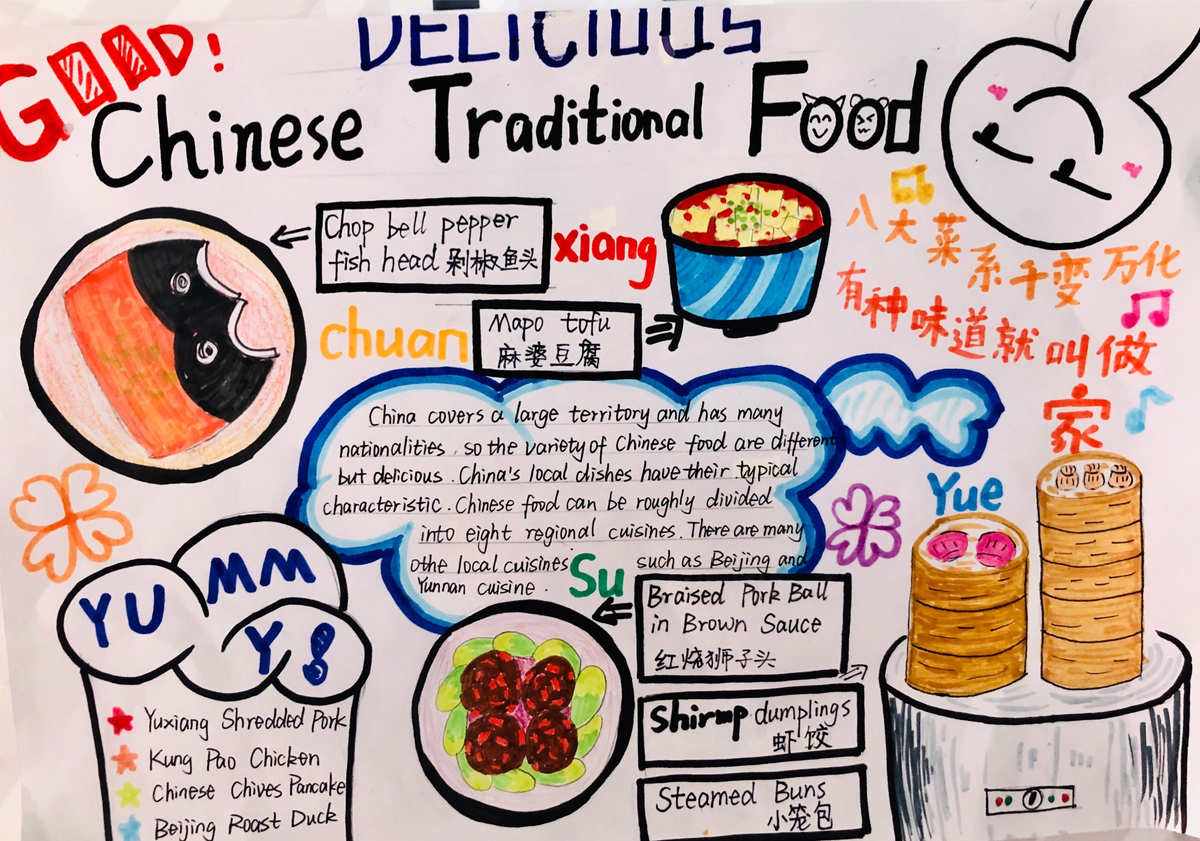 GOOD!
DELICIOUS
Chinese Traditional Food
Chop bell pepper
fish head 剁椒鱼头
xiang
chuan
Mapo tofu
麻婆豆腐
八大菜系千变万化
有种味道就叫做
家
China covers a large territory and has many
nationalities, so the variety of Chinese food are different
but delicious. China's local dishes have their typical
characteristic. Chinese food can be roughly divided
into eight regional cuisines. There are many
othe local cuisines such as Beijing and
Yunnan cuisine.
Su
Yue
Braised Pork Ball
in Brown Sauce
红烧狮子头
Shirmp dumplings
虾饺
Steamed Buns
小笼包
YUMMY!
Yuxiang Shredded Pork
Kung Pao Chicken
Chinese Chives Pancake
Beijing Roast Duck